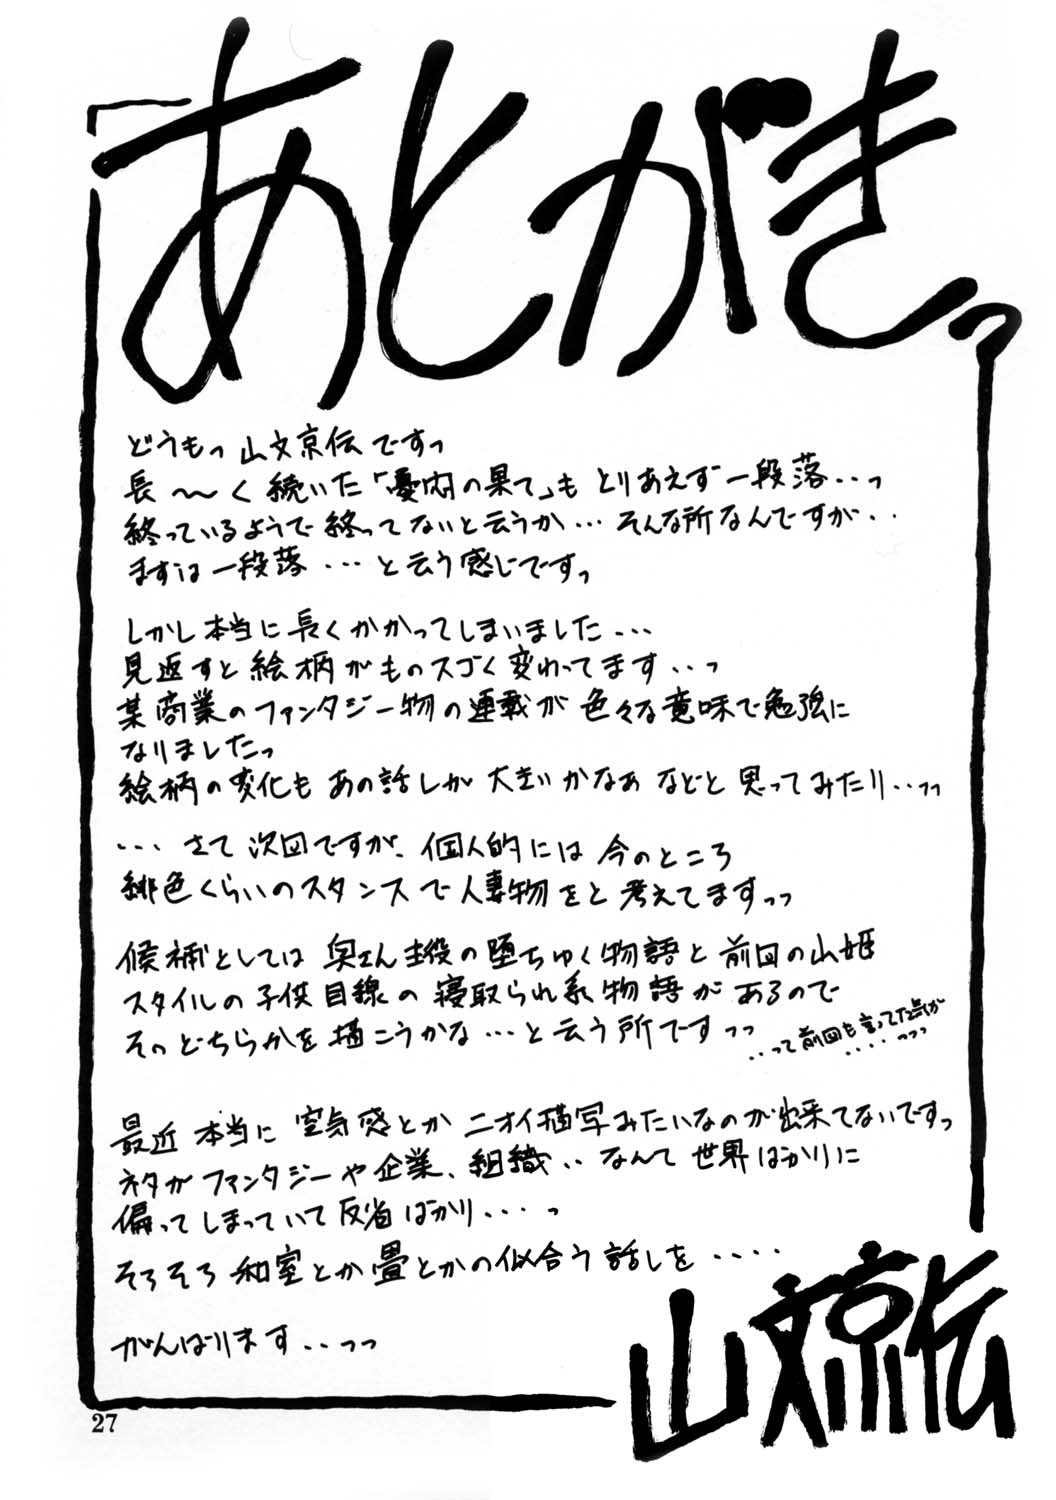 あとがきっ
どうもっ 山文京伝ですっ
長〜く続いた「憂内の果て」も とりあえず一段落‥っ
終っているようで終ってないと云うか… そんな所なんですが‥
まずは一段落…と云う感じですっ
しかし本当に長くかかってしまいました…
見返すと絵柄がものスゴく変わってます‥っ
某商業のファンタジー物の連載が色々な意味で勉強に
なりましたっ
絵柄の変化も あの話しが 大きいかなあ などと思ってみたり‥っっ
…さて次回ですが、個人的には今のところ
緋色くらいのスタンスで人妻物をと考えてますっっ
候補としては 奥さん主役の堕ちゆく物語と前回の山姫
スタイルの子供目線の寝取られ系物語があるので
そのどちらかを描こうかな…と云う所ですっっ
‥って前回も言ってた気が
‥‥っっっ
最近本当に空気感とか ニオイ描写みたいなのが出来てないですっ
ネタがファンタジーや企業、組織‥なんて世界ばかりに
偏ってしまっていて反省ばかり‥‥っ
そろそろ和室とか畳とかの似合う話しを‥‥
がんばります‥っっ
山文京伝
27